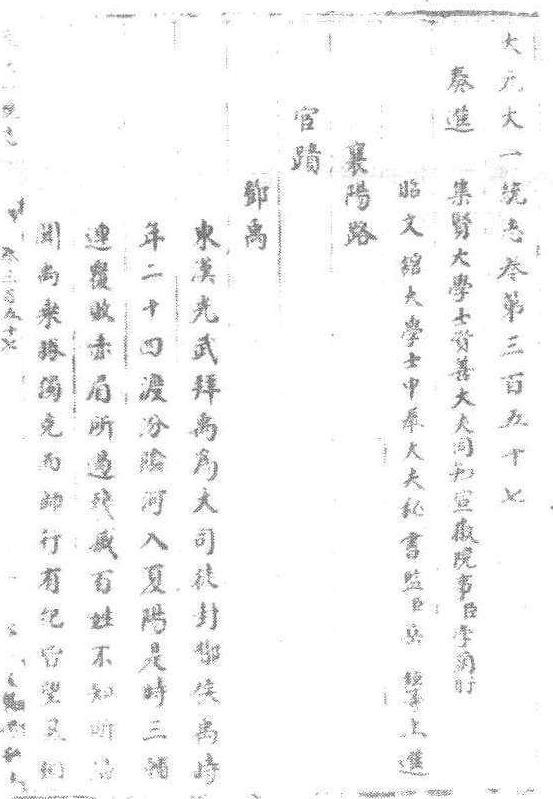 大元大一統志卷第三百五十七
奏進 集賢大學士資善大夫同知宣徽院事臣孛蘭肹
昭文館大學士中奉大夫秘書監臣岳 鉉等上進
襄陽路
官蹟
鄧禹
東漢光武拜禹為大司徒封酇侯禹時
年二十四渡汾陰河入夏陽是時三輔
連覆敗赤眉所過殘滅百姓不知所歸
聞禹乘勝獨克而師行有紀皆望風相
卷三百五十七